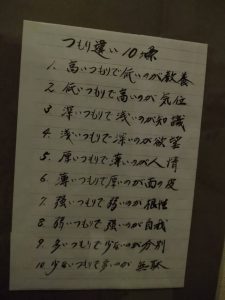 つもり違い10ヶ条
1. 高いつもりで低いのが教養
2. 低いつもりで高いのが気位
3. 深いつもりで浅いのが知識
4. 浅いつもりで深いのが欲望
5. 厚いつもりで薄いのが人情
6. 薄いつもりで厚いのが面の皮
7. 強いつもりで弱いのが根性
8. 弱いつもりで強いのが自我
9. 多いつもりで少ないのが分別
10. 少ないつもりで多いのが無駄